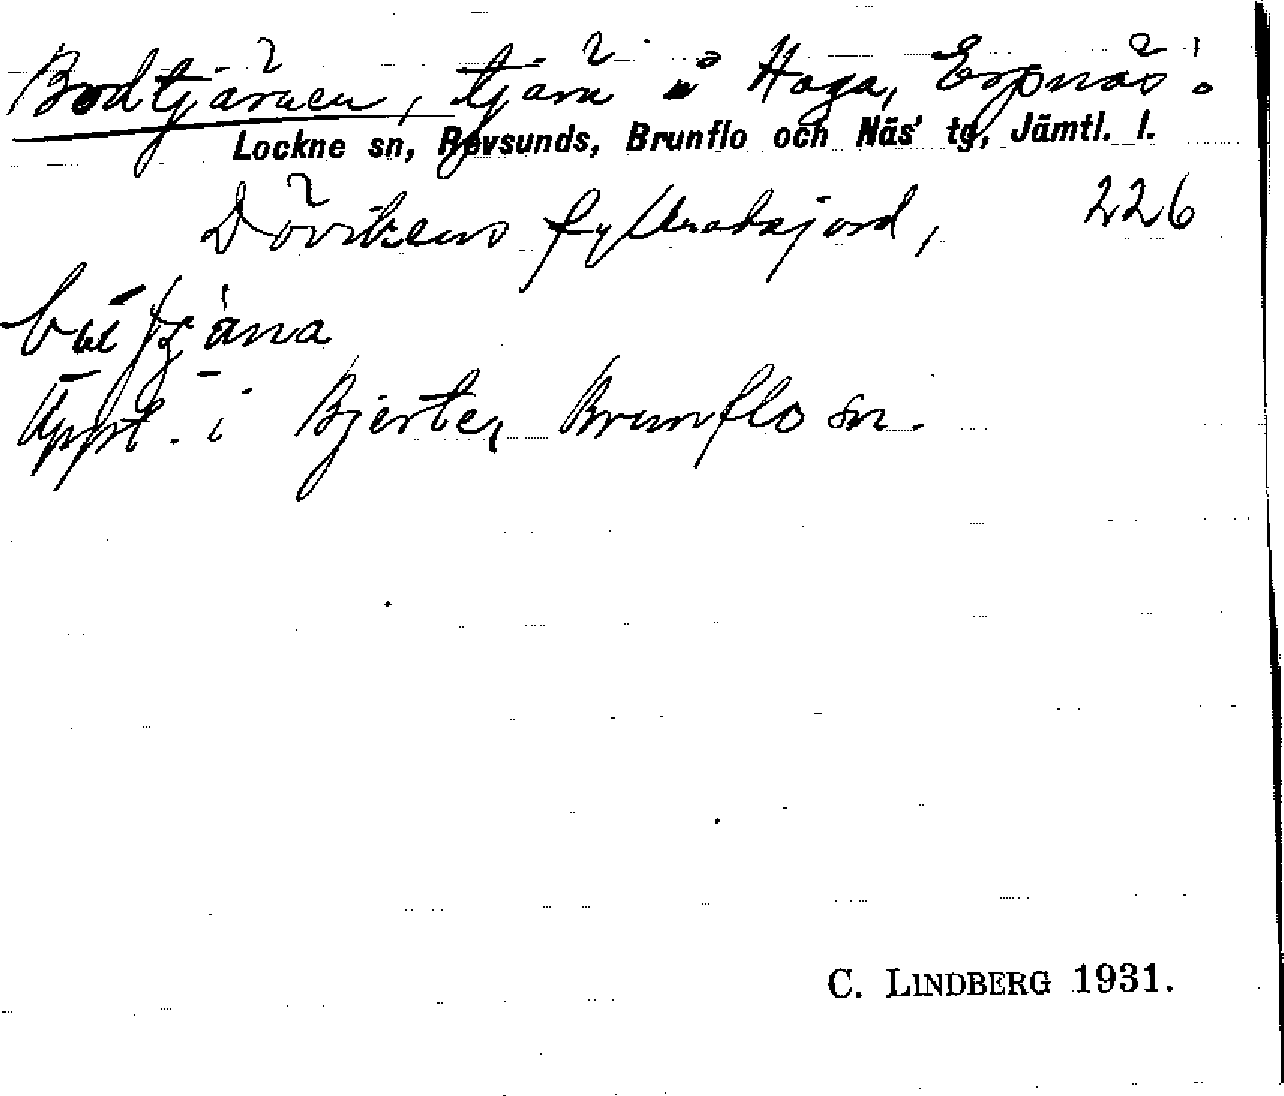 Bodtjärnen, tjärn i Haga, Erpnäs o.
Lockne sn, Revsunds, Brunflo och Näs' tg, Jämtl. l.
Dövikens fyllnadsjord, 226
Uppt. i Bjerte, Brunflo sn.
C. LINDBERG 1931.